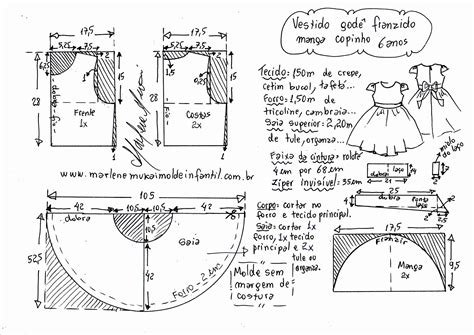 Vestido godê franzido
manga copinho 6 anos
17,5
5,25 7,5
2
6,5
15
28
dobra
Frente
1x
1
17,5
5,25 7,5
2
1
15
28
Costas
2x
1
Tecido: 1,50m de crepe,
cetim bucol, tafetá...
Forro: 1,50m de
tricoline, cambraia...
Saia superior: 2,20m
de tule, organza...
Faixa da cintura: rolotê
4cm por 68cm
Zíper Invisível: 35cm
dobra laço
21
ponta laço
miolo do
laço
25
dobra
2
Corpo: cortar no
forro e tecido principal.
Saia: cortar 1x
forro, 1x tecido
principal e 2x
tule ou
organza.
www.marlenemukaimoldeinfantil.com.br
105
42 10,5 10,5 42
dobra
10,5
Saia
42
52,5
Forro - 2cm
Molde sem
margem de
costura
17,5
Franzir
Manga
2x
9,5
2